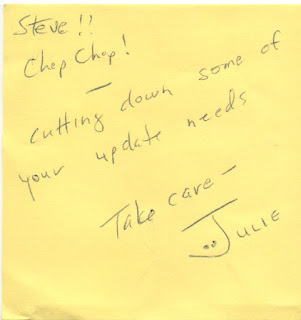 Steve!!
Chop Chop!
—
cutting down some of
your update needs
Take care —
Julie